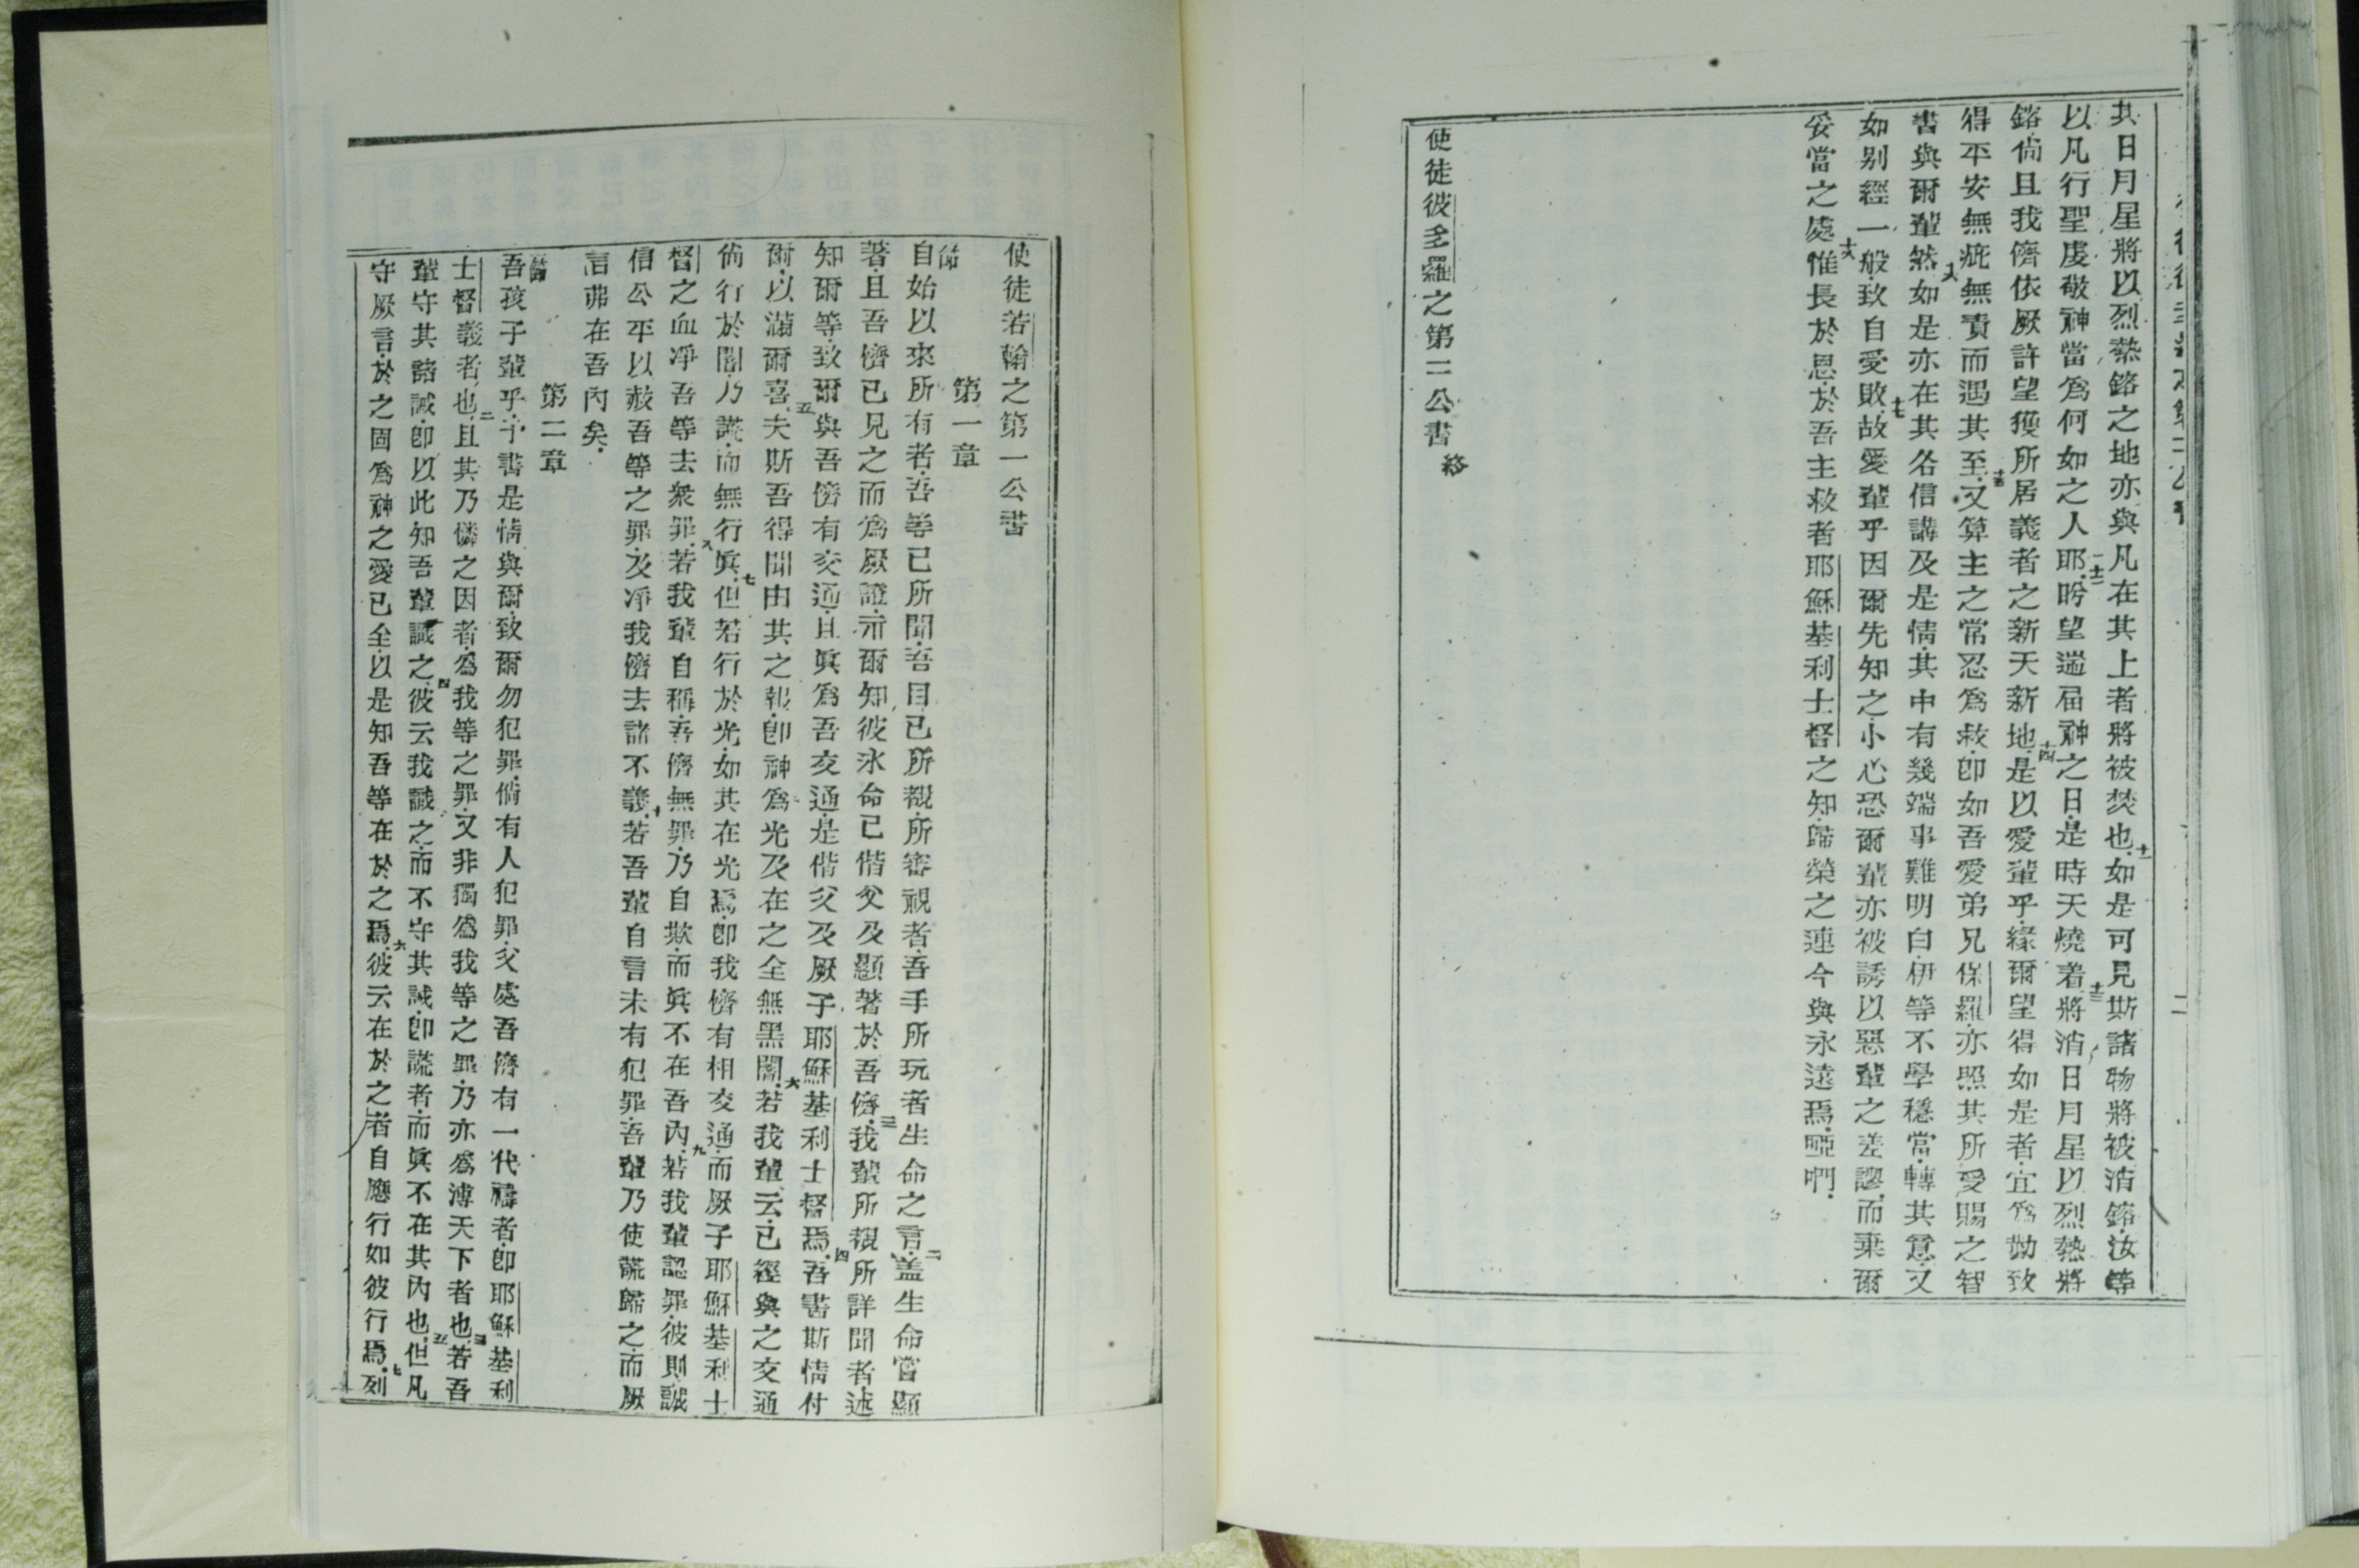 其日月星將以烈熱鎔之地亦與凡在其上者將被焚也十一如是可見斯諸物將被消鎔汝等
以凡行聖虔敬神當爲何如之人耶十二盻望遄屆神之日是時天燒着將消日月星以烈熱將
鎔十三倘且我儕依厥許望獲所居義者之新天新地十四是以愛輩乎緣爾望得如是者宜爲勤致
得平安無疵無責而遇其至十五又算主之常忍爲救卽如吾愛弟兄保羅亦照其所受賜之智
書與爾輩然十六如是亦在其各信講及是情其中有幾端事難明白伊等不學穩當轉其意又
如别經一般致自受敗十七故愛輩乎因爾先知之小心恐爾輩亦被誘以惡輩之差謬而棄爾
妥當之處十八惟長於恩於吾主救者耶穌基利士督之知歸榮之連今與永遠焉啞們
使徒彼多羅之第二公書終
使徒若翰之第一公書
第一章
自始以來所有者吾等已所聞吾目已所覩所審視者吾手所玩者生命之言二盖生命嘗顯
著且吾儕已見之而爲厥證示爾知彼永命已偕父及顯著於吾儕三我輩所覩所詳聞者述
知爾等致爾與吾儕有交通且眞爲吾交通是偕父及厥子耶穌基利士督焉四吾書斯情付
爾以滿爾喜五夫斯吾得聞由其之報卽神爲光及在之全無黑闇六若我輩云已經與之交通
倘行於闇乃謊而無行眞七但若行於光如其在光焉卽我儕有相交通而厥子耶穌基利士
督之血凈吾等去衆罪八若我輩自稱吾儕無罪乃自欺而眞不在吾內九若我輩認罪彼則誠
信公平以赦吾等之罪及凈我儕去諸不義十若吾輩自言未有犯罪吾輩乃使謊歸之而厥
言弗在吾內矣
第二章
吾孩子輩乎予書是情與爾致爾勿犯罪倘有人犯罪父處吾儕有一代禱者卽耶穌基利
士督義者也二且其乃憐之因者爲我等之罪又非獨爲我等之罪乃亦爲溥天下者也三若吾
輩守其諸誡卽以此知吾輩識之四彼云我識之而不守其誡卽謊者而眞不在其內也五但凡
守厥言於之固爲神之愛已全以是知吾等在於之焉六彼云在於之者自應行如彼行焉七列